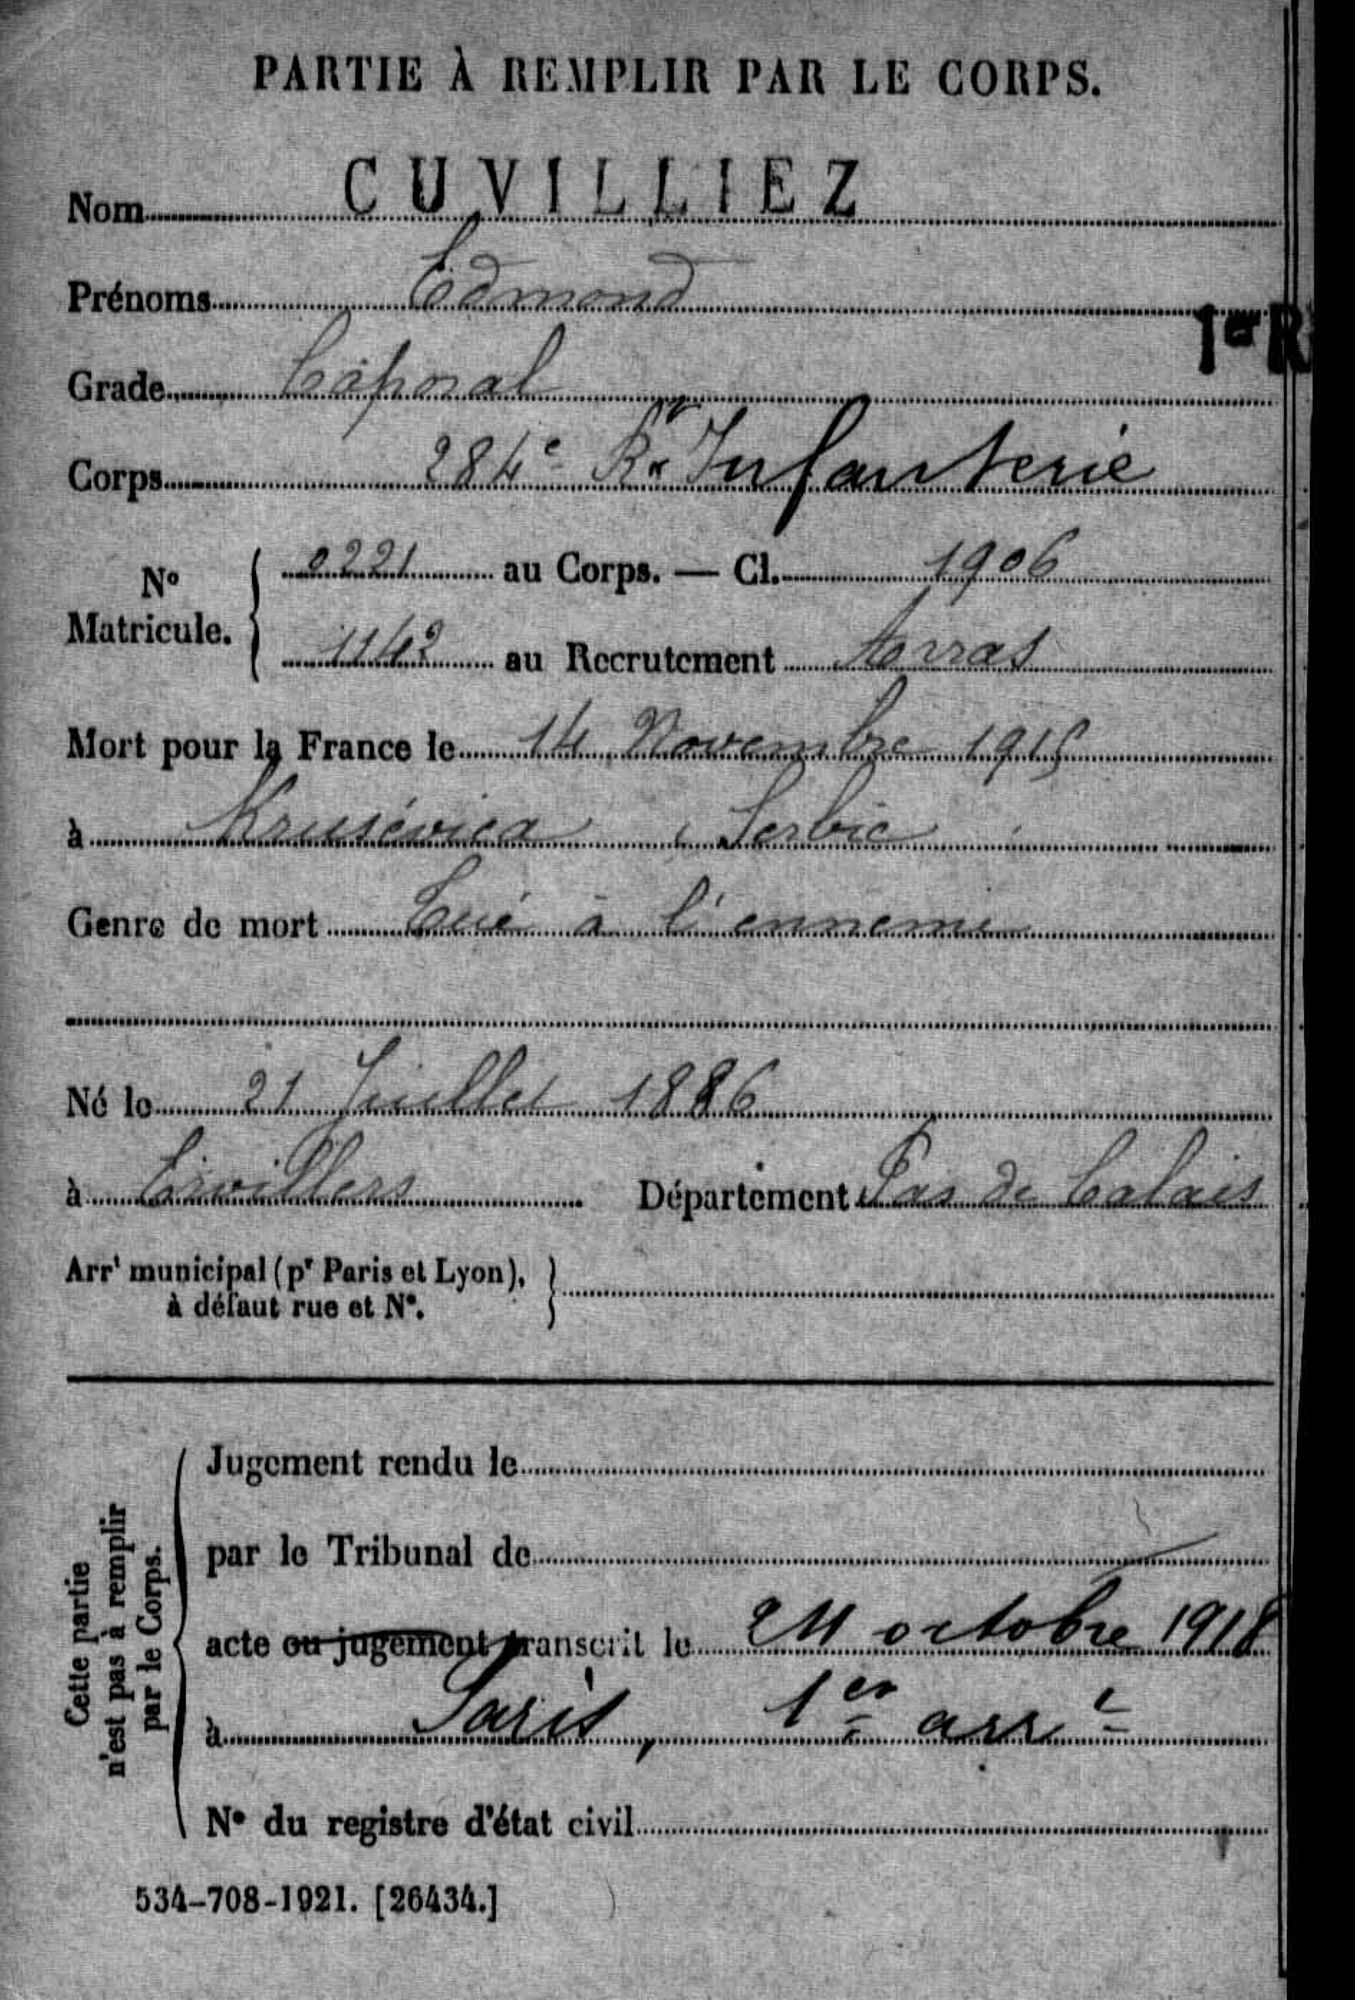 PARTIE À REMPLIR PAR LE CORPS.
Nom CUVILLIEZ
Prénoms Edmond
1er R
Grade Caporal
Corps 284e Rt Infanterie
No Matricule. 0221 au Corps. — Cl. 1906
1142 au Recrutement Arras
Mort pour la France le 14 Novembre 1915
à Krusévica, Serbie
Genre de mort Tué à l'ennemi
Né le 21 Juillet 1886
à Ervillers Département Pas de Calais
Arrt municipal (pr Paris et Lyon),
à défaut rue et No.
Cette partie
n'est pas à remplir
par le Corps.
Jugement rendu le
par le Tribunal de
acte ou jugement transcrit le octobre 1918
à Paris, 1er arrt
No du registre d'état civil
534-708-1921. [26434.]